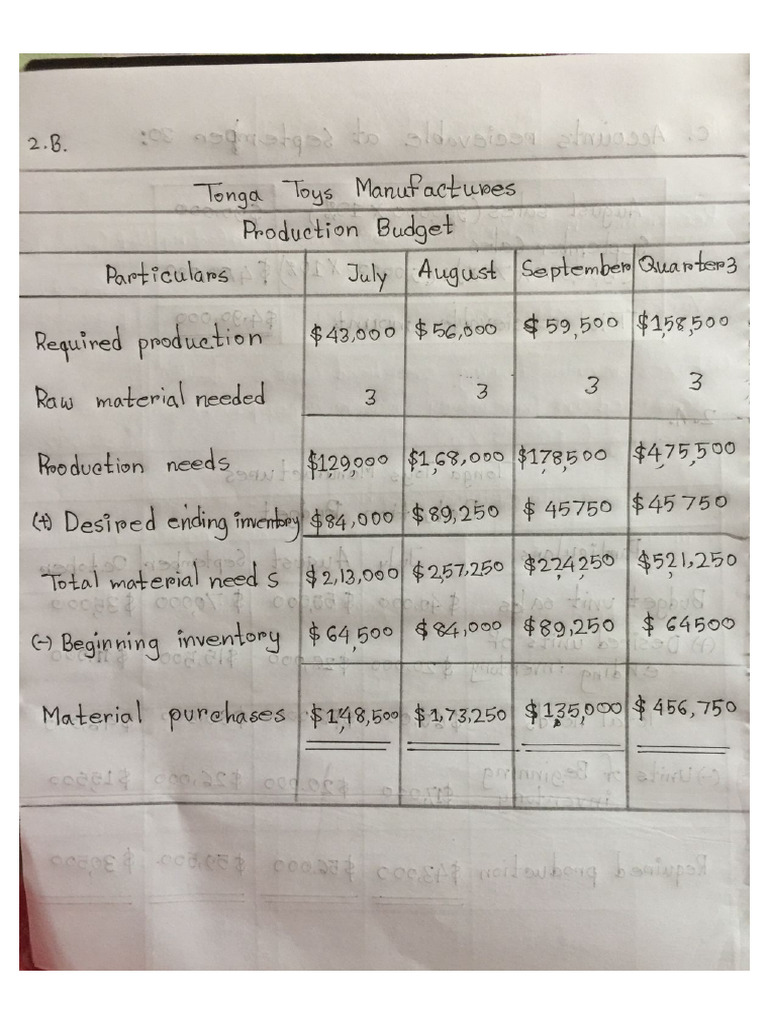 2.B.
Tonga Toys Manufactures
Production Budget
Particulars July August September Quarter 3
Required production $43,000 $56,000 $59,500 $158,500
Raw material needed 3 3 3 3
Production needs $129,000 $1,68,000 $178,500 $475,500
(+) Desired ending inventory $84,000 $89,250 $45750 $45750
Total material needs $2,13,000 $2,57,250 $224,250 $521,250
(-) Beginning inventory $64,500 $84,000 $89,250 $64500
Material purchases $148,500 $1,73,250 $135,000 $456,750